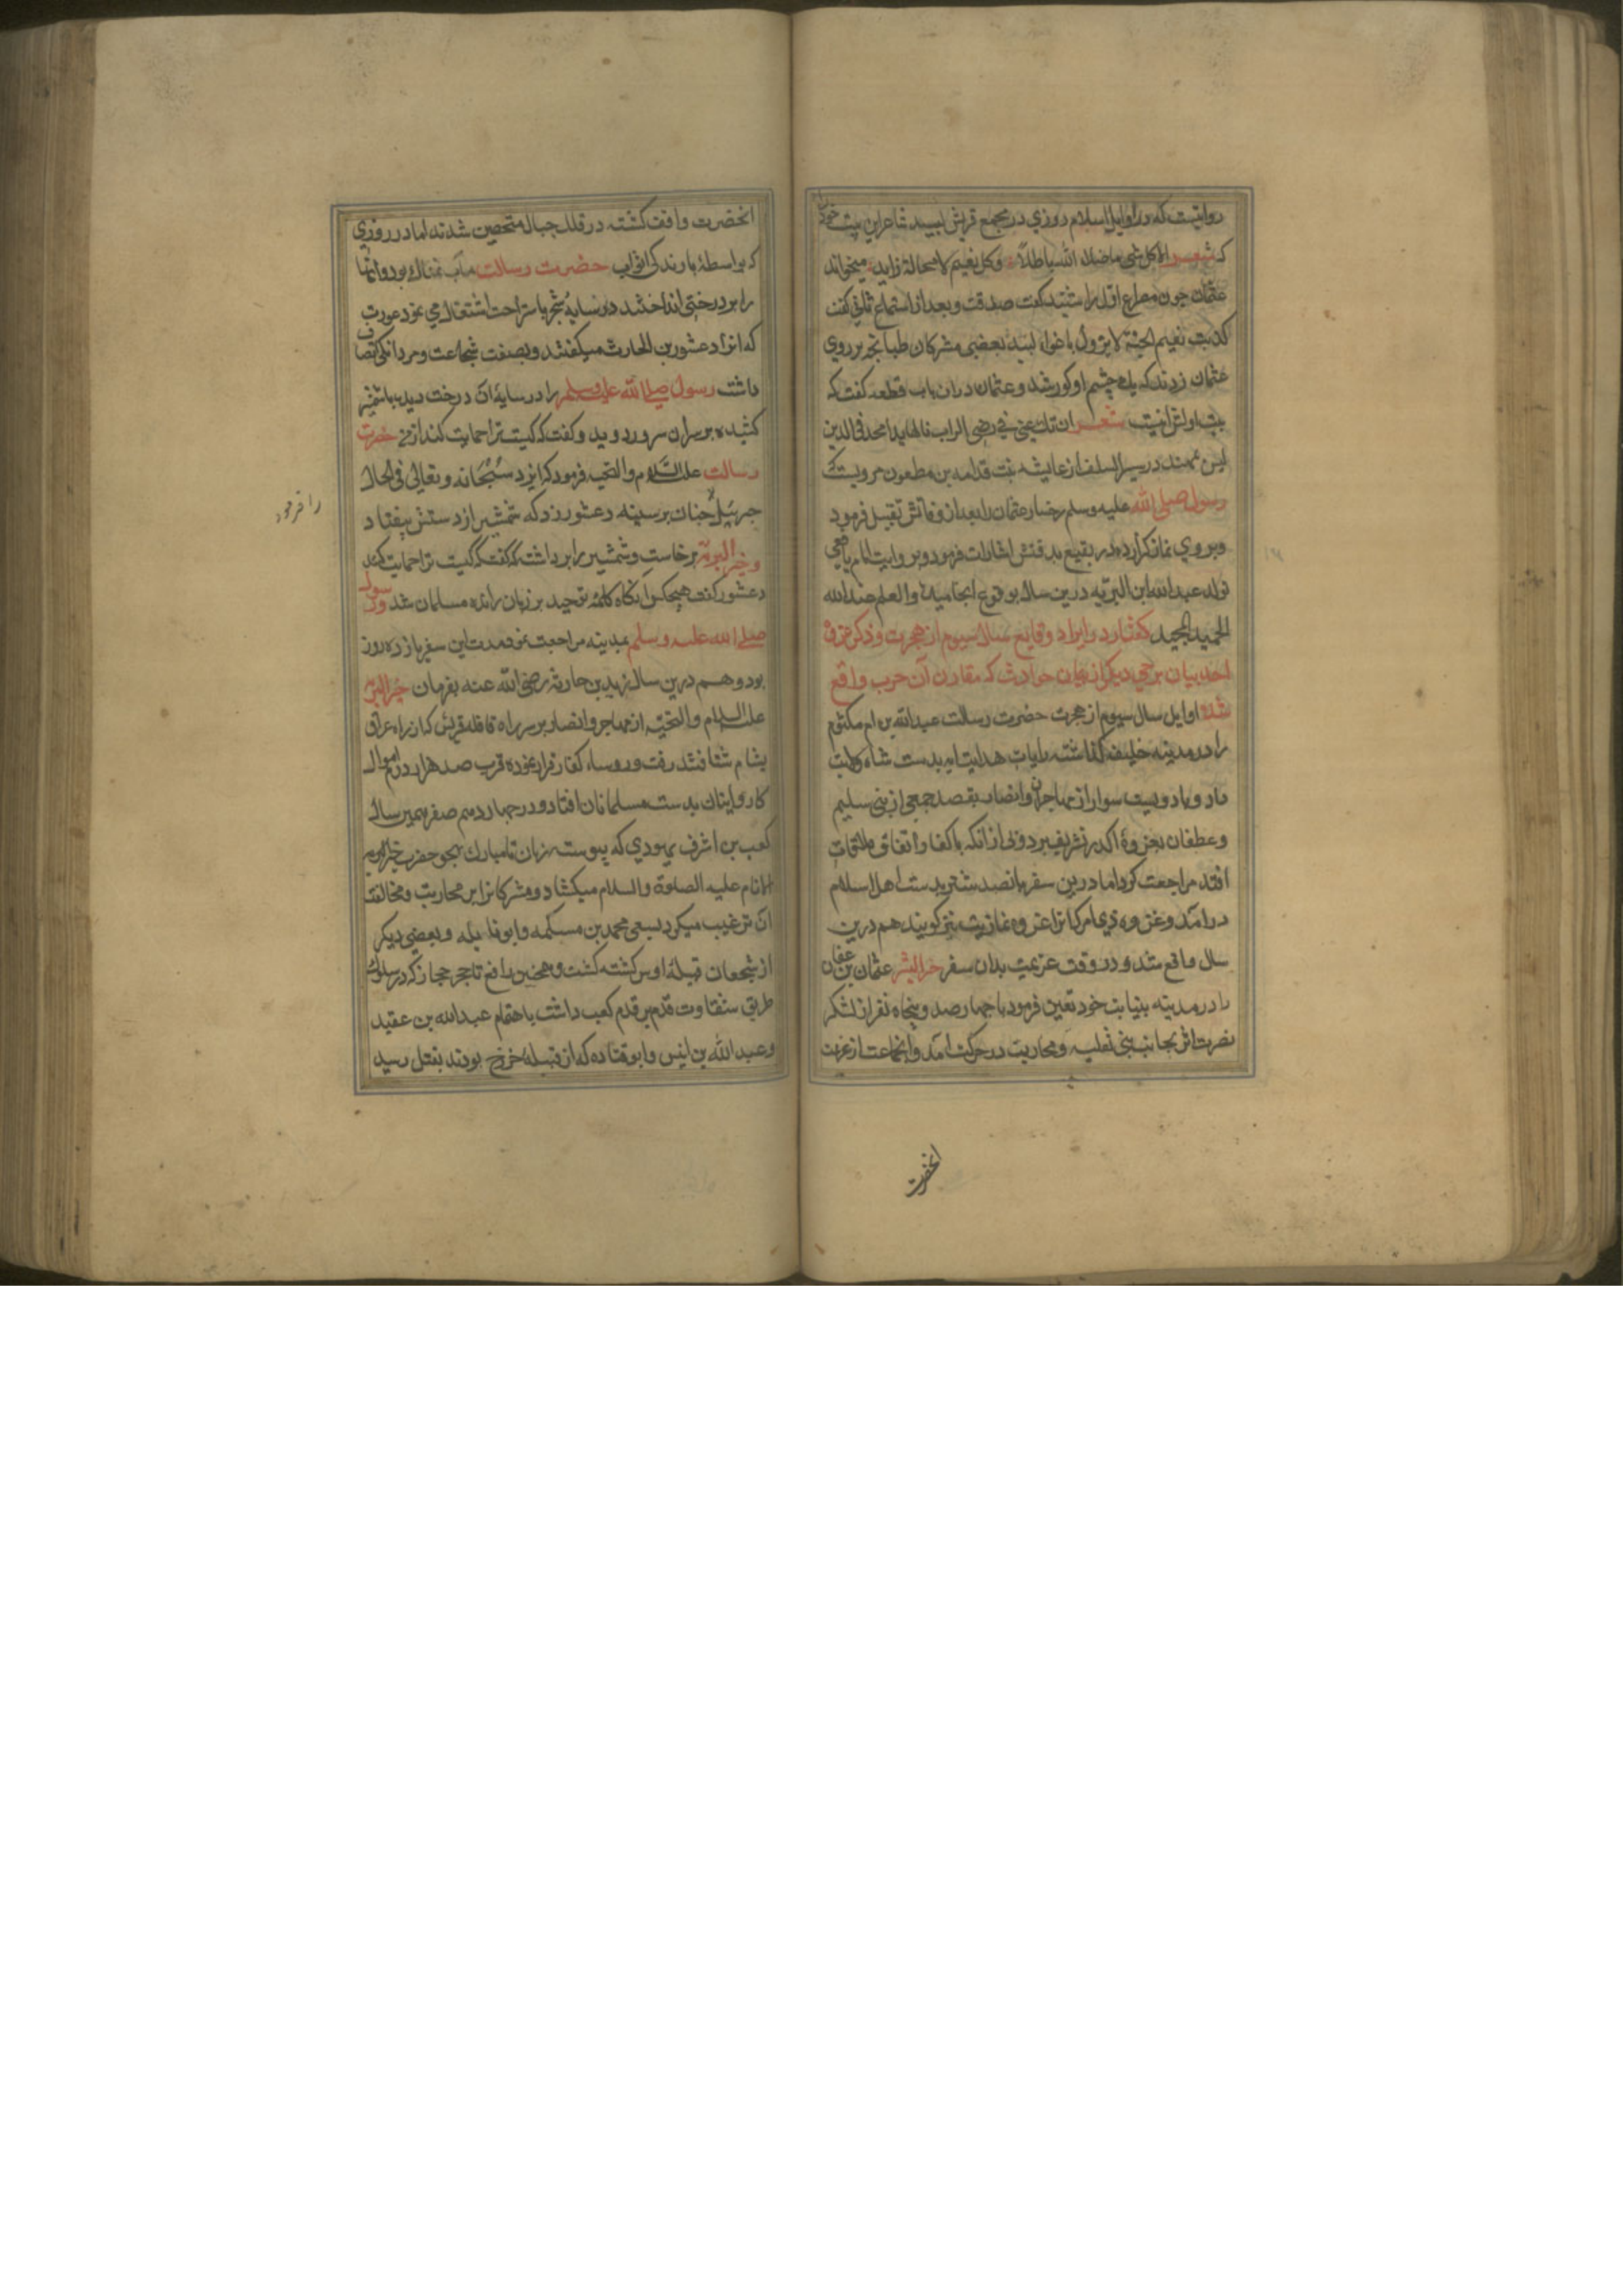 روایتست که در اوایل اسلام روزی در مجمع قریش لبید شاعر این بیت خود
که شعر الا کل شی ما خلا الله باطلا وکل نعیم لا محالة زایله میخواند
عثمان چون مصراع اول را شنید گفت صدقت وبعد از استماع ثانی گفت
کذبت نعیم الجنة لا یزول باغواء لبید بعضی مشرکان طبانجه بر روی
عثمان زدند که یک چشم او کور شد وعثمان در آن باب قطعه گفت که
بیت اولش اینست شعر ان تک عینی فی رضی الرب نالها یدا ملحد فی الدین
لیس بمهتد در سیر السلف از عایشه بنت قدامه بن مظعون مرویست که
رسول صلی الله علیه وسلم رخسار عثمان را بعد از وفاتش تقبیل فرمود
وبر وی نماز کزارده در بقیع بدفنش اشارات فرمود وبروایت امام یافعی
تولد عبدالله ابن الزبیر درین سال بوقوع انجامید والعلم عند الله
الحمید المجید کفتار در ایراد وقایع سال سیوم از هجرت وذکر غزوه
احد بیان برخی دیکر از حوادث که مقارن آن حرب واقع
شده اوایل سال سیوم از هجرت حضرت رسالت عبدالله بن ام مکتوم
را در مدینه خلیفه کذاشته رایات هدایت ایه بدست شاه ولایت
داد وبا دویست سوار از مهاجران وانصار بقصد جمعی از بنی سلیم
وغطفان بغزوۀ اکدر تشریف برد وبی از آنکه با کفار اتفاق ملاقات
افتد مراجعت کرد اما درین سفر پانصد شتر بدست اهل اسلام
درآمد وغزوه ذی امر که انرا غزوه غطفان نیز کویند هم درین
سال واقع شد ودر وقت عزیمت بدان سفر خیر البشر عثمان بن عفان
را در مدینه بنیابت خود تعین فرمود با چهارصد وپنجاه نفر از لشکر
نصرت اثر بجانب بنی ثعلبه ومحارب در حرکت آمد وانجماعت از عزیمت
انحضرت
انحضرت واقف کشته در قلل جبال متحصن شدند اما در روزی
که بواسطۀ بارندکی اثواب حضرت رسالت مآب نمناک بود وانها
را بر درختی انداخته در سایۀ شجر باستراحت اشتغال می نمود عورث
که انرا دعثور بن الحارث میکفتند وبصفت شجاعت ومردانکی اتصاف
داشت رسول صلی الله علیه وسلم را در سایۀ ان درخت دید با شمشیر
کشیده بر سر ان سرور دوید وکفت که کیست ترا حمایت کند از من حضرت
رسالت علیه السلام والتحیه فرمود که ایزد سبحانه وتعالی فی الحال
جبرئیل چنان بر سینه دعثور زد که شمشیر از دستش بیفتاد
وخیر البریه برخاست وشمشیر را برداشته کفت که کیست ترا حمایت کند
دعثور کفت هیچکس انکاه کلمۀ توحید بر زبان رانده مسلمان شد ورسول
صلی الله علیه وسلم بمدینه مراجعت نمود مدت این سفر یازده روز
بود وهم درین سال زید بن حارثه رضی الله عنه بفرمان خیر البریه
علیه السلام والتحیة از مهاجر وانصار بر سر راه قافله قریش که از راه عراق
بشام شتافتند رفت وروساء کفار فرار نموده قرب صد هزار درم اموال
کاروانیان بدست مسلمانان افتاد ودر چهاردهم صفر همین سال
کعب بن اشرف یهودی که پیوسته زبان نامبارک بهجو حضرت خیر
الانام علیه الصلوة والسلام میکشاد ومشرکانرا بر محاربت ومخالفت
ان ترغیب میکرد بسعی محمد بن مسلمه وابو نایله وبعضی دیکر
از شجعان قبیلۀ اوس کشته کشت وهمچنین رافع تاجر حجاز که در سلوک
طریق شقاوت قدم بر قدم کعب داشت باهتمام عبدالله بن عقیل
وعبدالله بن انیس وابو قتاده که از قبیله خزرج بودند بقتل رسید
را فرمود